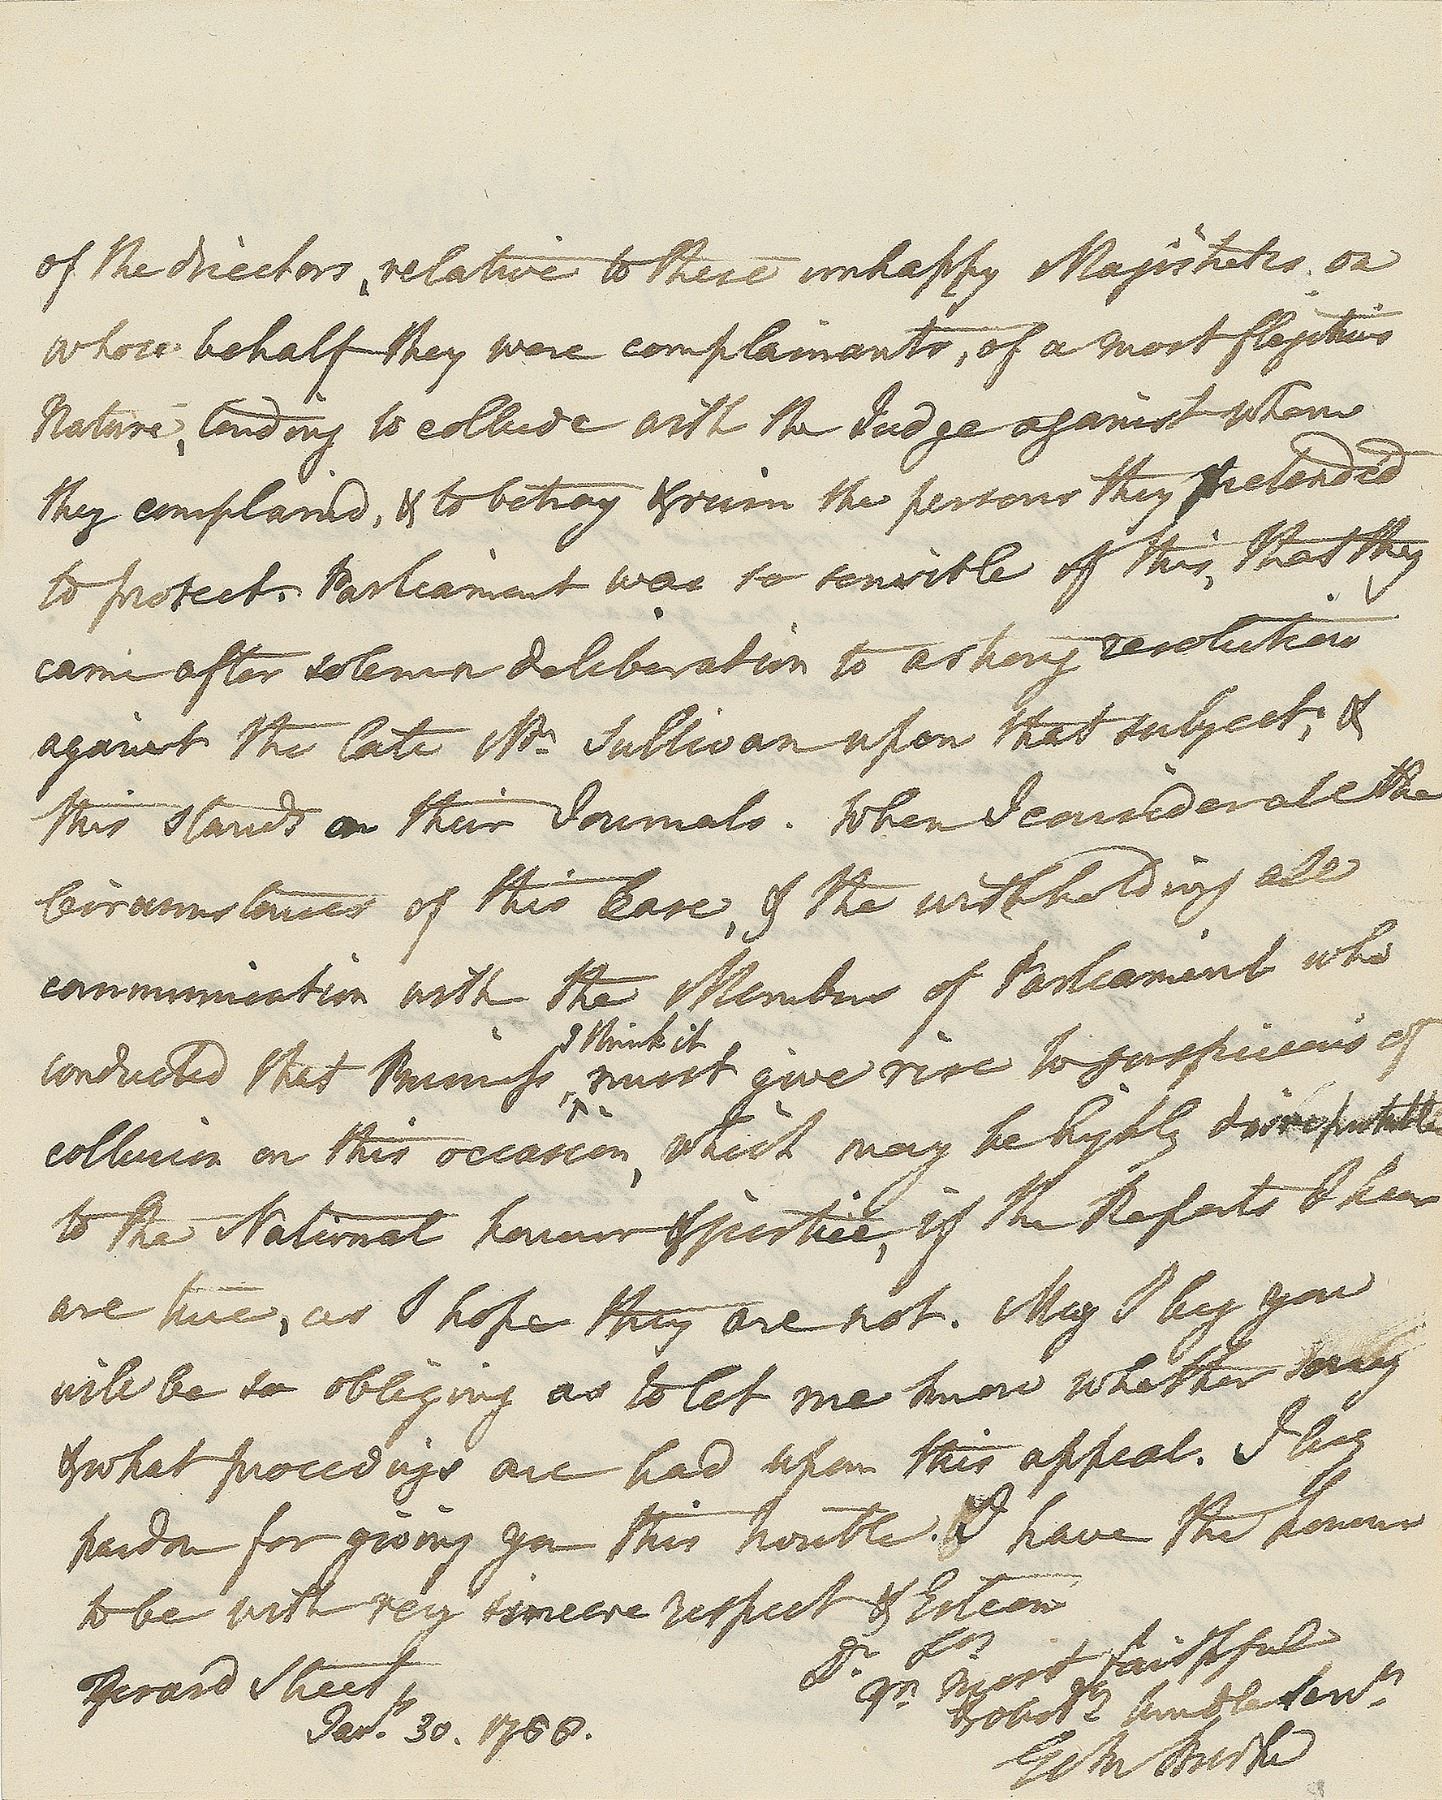 of the directors, relative to these unhappy Magistrates, on
whose behalf they were complainants, of a most flagitious
Nature, tending to collude with the Judge against whom
they complaind, & to betray & ruin the persons they pretended
to protect. Parliament was so sensible of this, that they
came after solemn deliberation to a strong resolution
against the late Mr. Sullivan upon that subject; &
this stands on their Journals. When I consider all the
Circumstances of this Case, & the withholding all
communication with the Members of Parliament who
I think it
conducted that Business, must give rise to suspicions of
collusion on this occasion, which may be highly disreputable
to the National honour & justice, if the Reports I hear
are true, as I hope they are not. May I beg you
will be so obliging as to let me know whether any
& what proceedings are had upon this appeal. I beg
pardon for giving you this trouble. I have the honour
to be with very sincere respect & Esteem
Dr Sir
Gerard Street, yr most faithful
& obedt humble Servt
Jany. 30. 1788.
Edm Burke